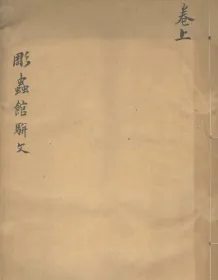 卷上
彫蟲館駢文